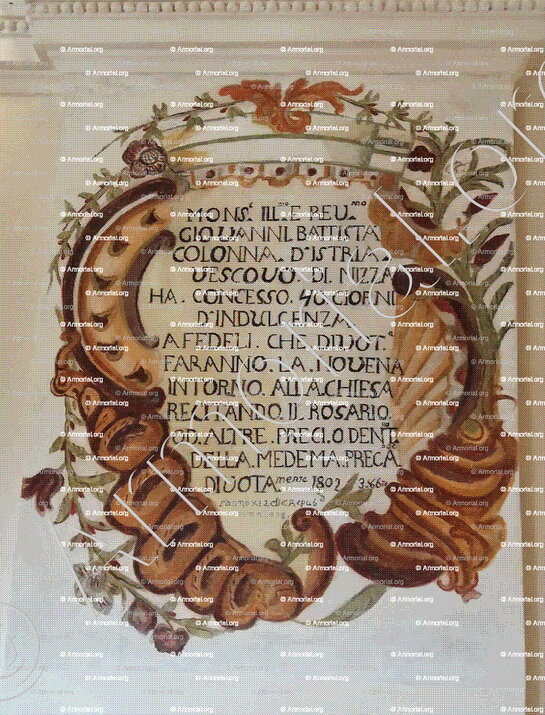 MONS.E ILL.MO E REV.MO
GIOVANNI. BATTISTA
COLONNA. D'ISTRIA
VESCOVO. DI. NIZZA
HA. CONCESSO. 40. GIORNI
D'INDULGENZA.
A FEDELI. CHE. DIVOT.E
FARANNO. LA. NOVENA
INTORNO. ALLA. CHIESA
RECITANDO. IL. ROSARIO.
ED. ALTRE. PREGI. O DENT.O
DELLA. MEDEMA. PRECA
DIVOTAmente 1802
© Armorial.org